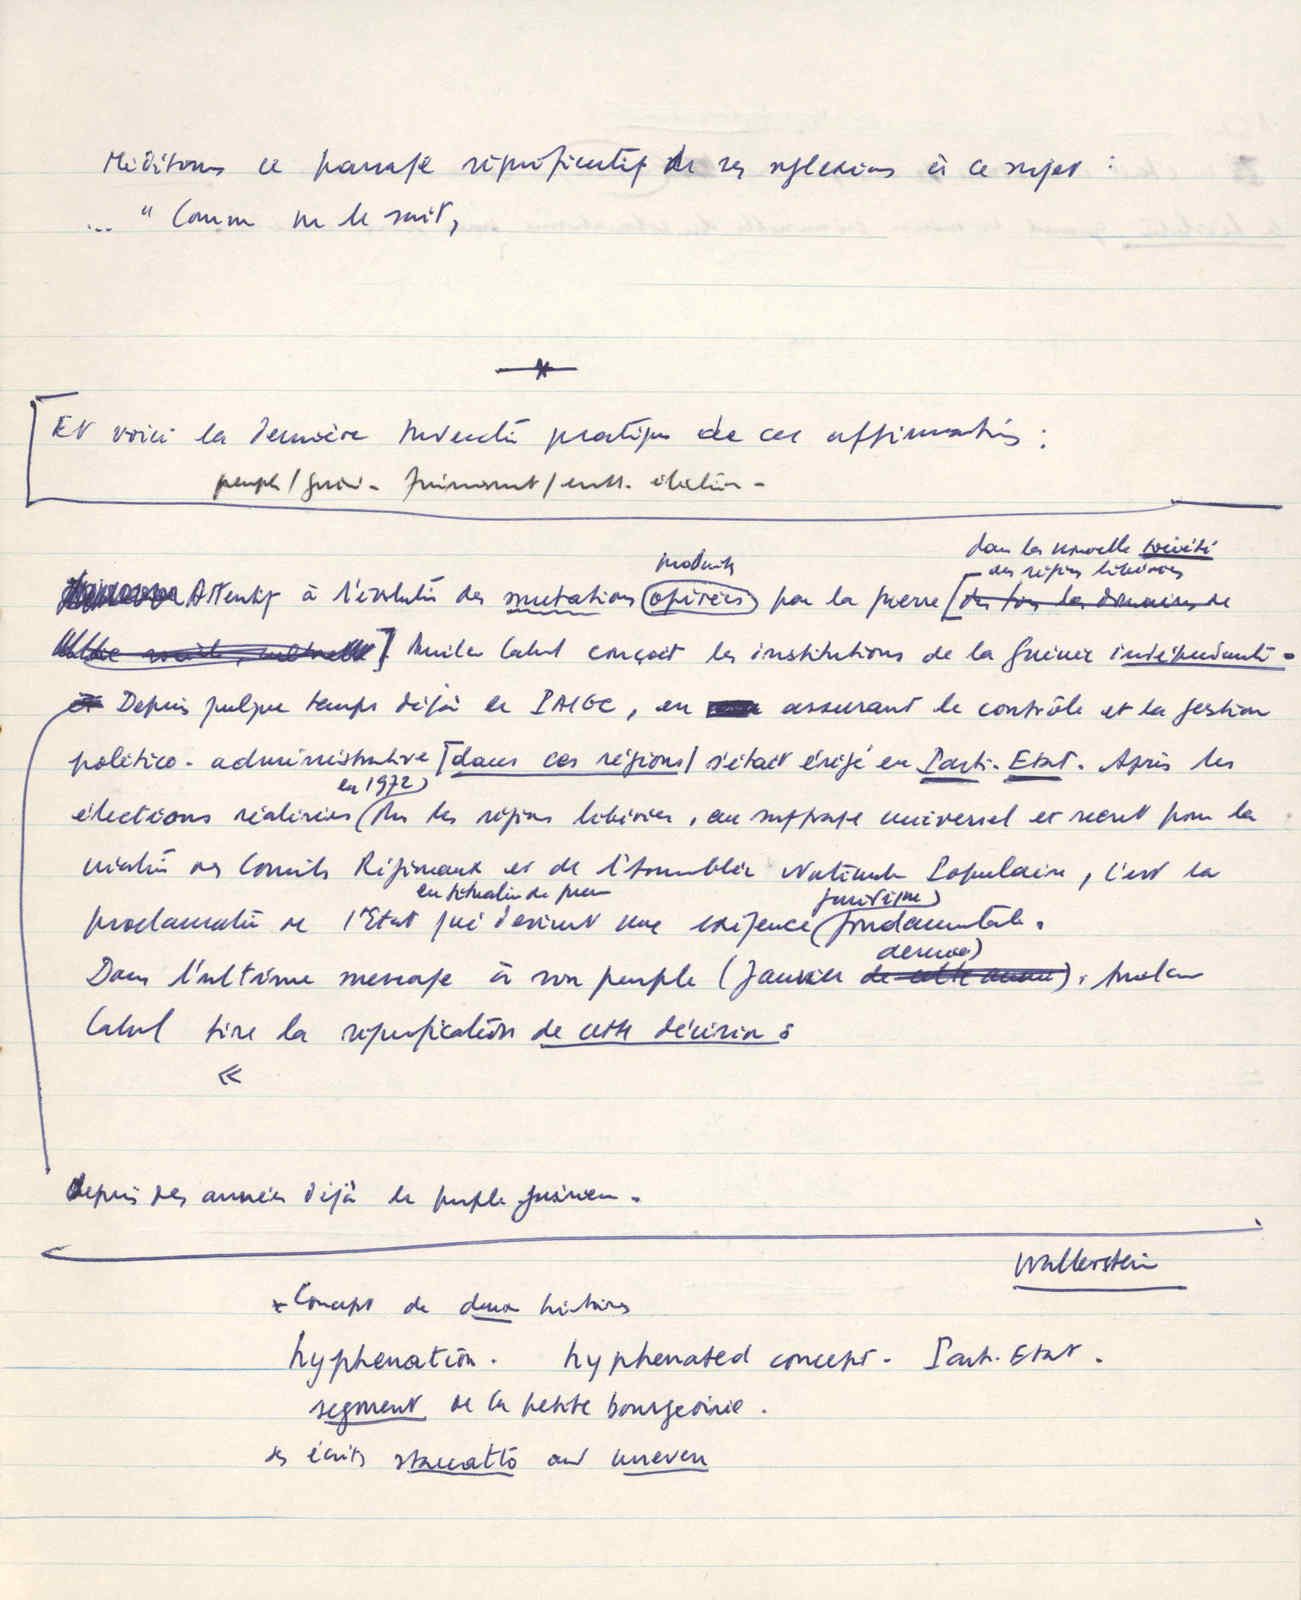 Méditons ce passage significatif de ses réflexions à ce sujet :
... " Comme on le sait,
Et voici la dernière pratique de ces affirmations :
peuple / guin -
dans la nouvelle société
produits des régions libérées
Attentif à l'évolution des mutations opérées par la guerre [ des tous les domaines de
] Amilcar Cabral conçoit les institutions de la Guinée indépendante.
Depuis quelque temps déjà le PAIGC, en assurant le contrôle et la gestion
politico-administrative [dans ces régions] s'était érigé en Parti-Etat. Après les
en 1972
élections réalisées dans les régions libérées, au suffrage universel et secret pour la
création des Conseils Régionaux et de l'Assemblée Nationale Populaire, c'est la
juridique
proclamation de l'Etat qui devient une exigence fondamentale.
dernier)
Dans l'ultime message à son peuple (Janvier de cette année), Amilcar
Cabral tire la signification de cette décision :
«
depuis des années déjà le peuple guinéen.
Wallerstein
Concept de deux histoires
hyphenation. hyphenated concept - Parti-Etat.
segment de la petite bourgeoisie.
des écrits staccatto and uneven